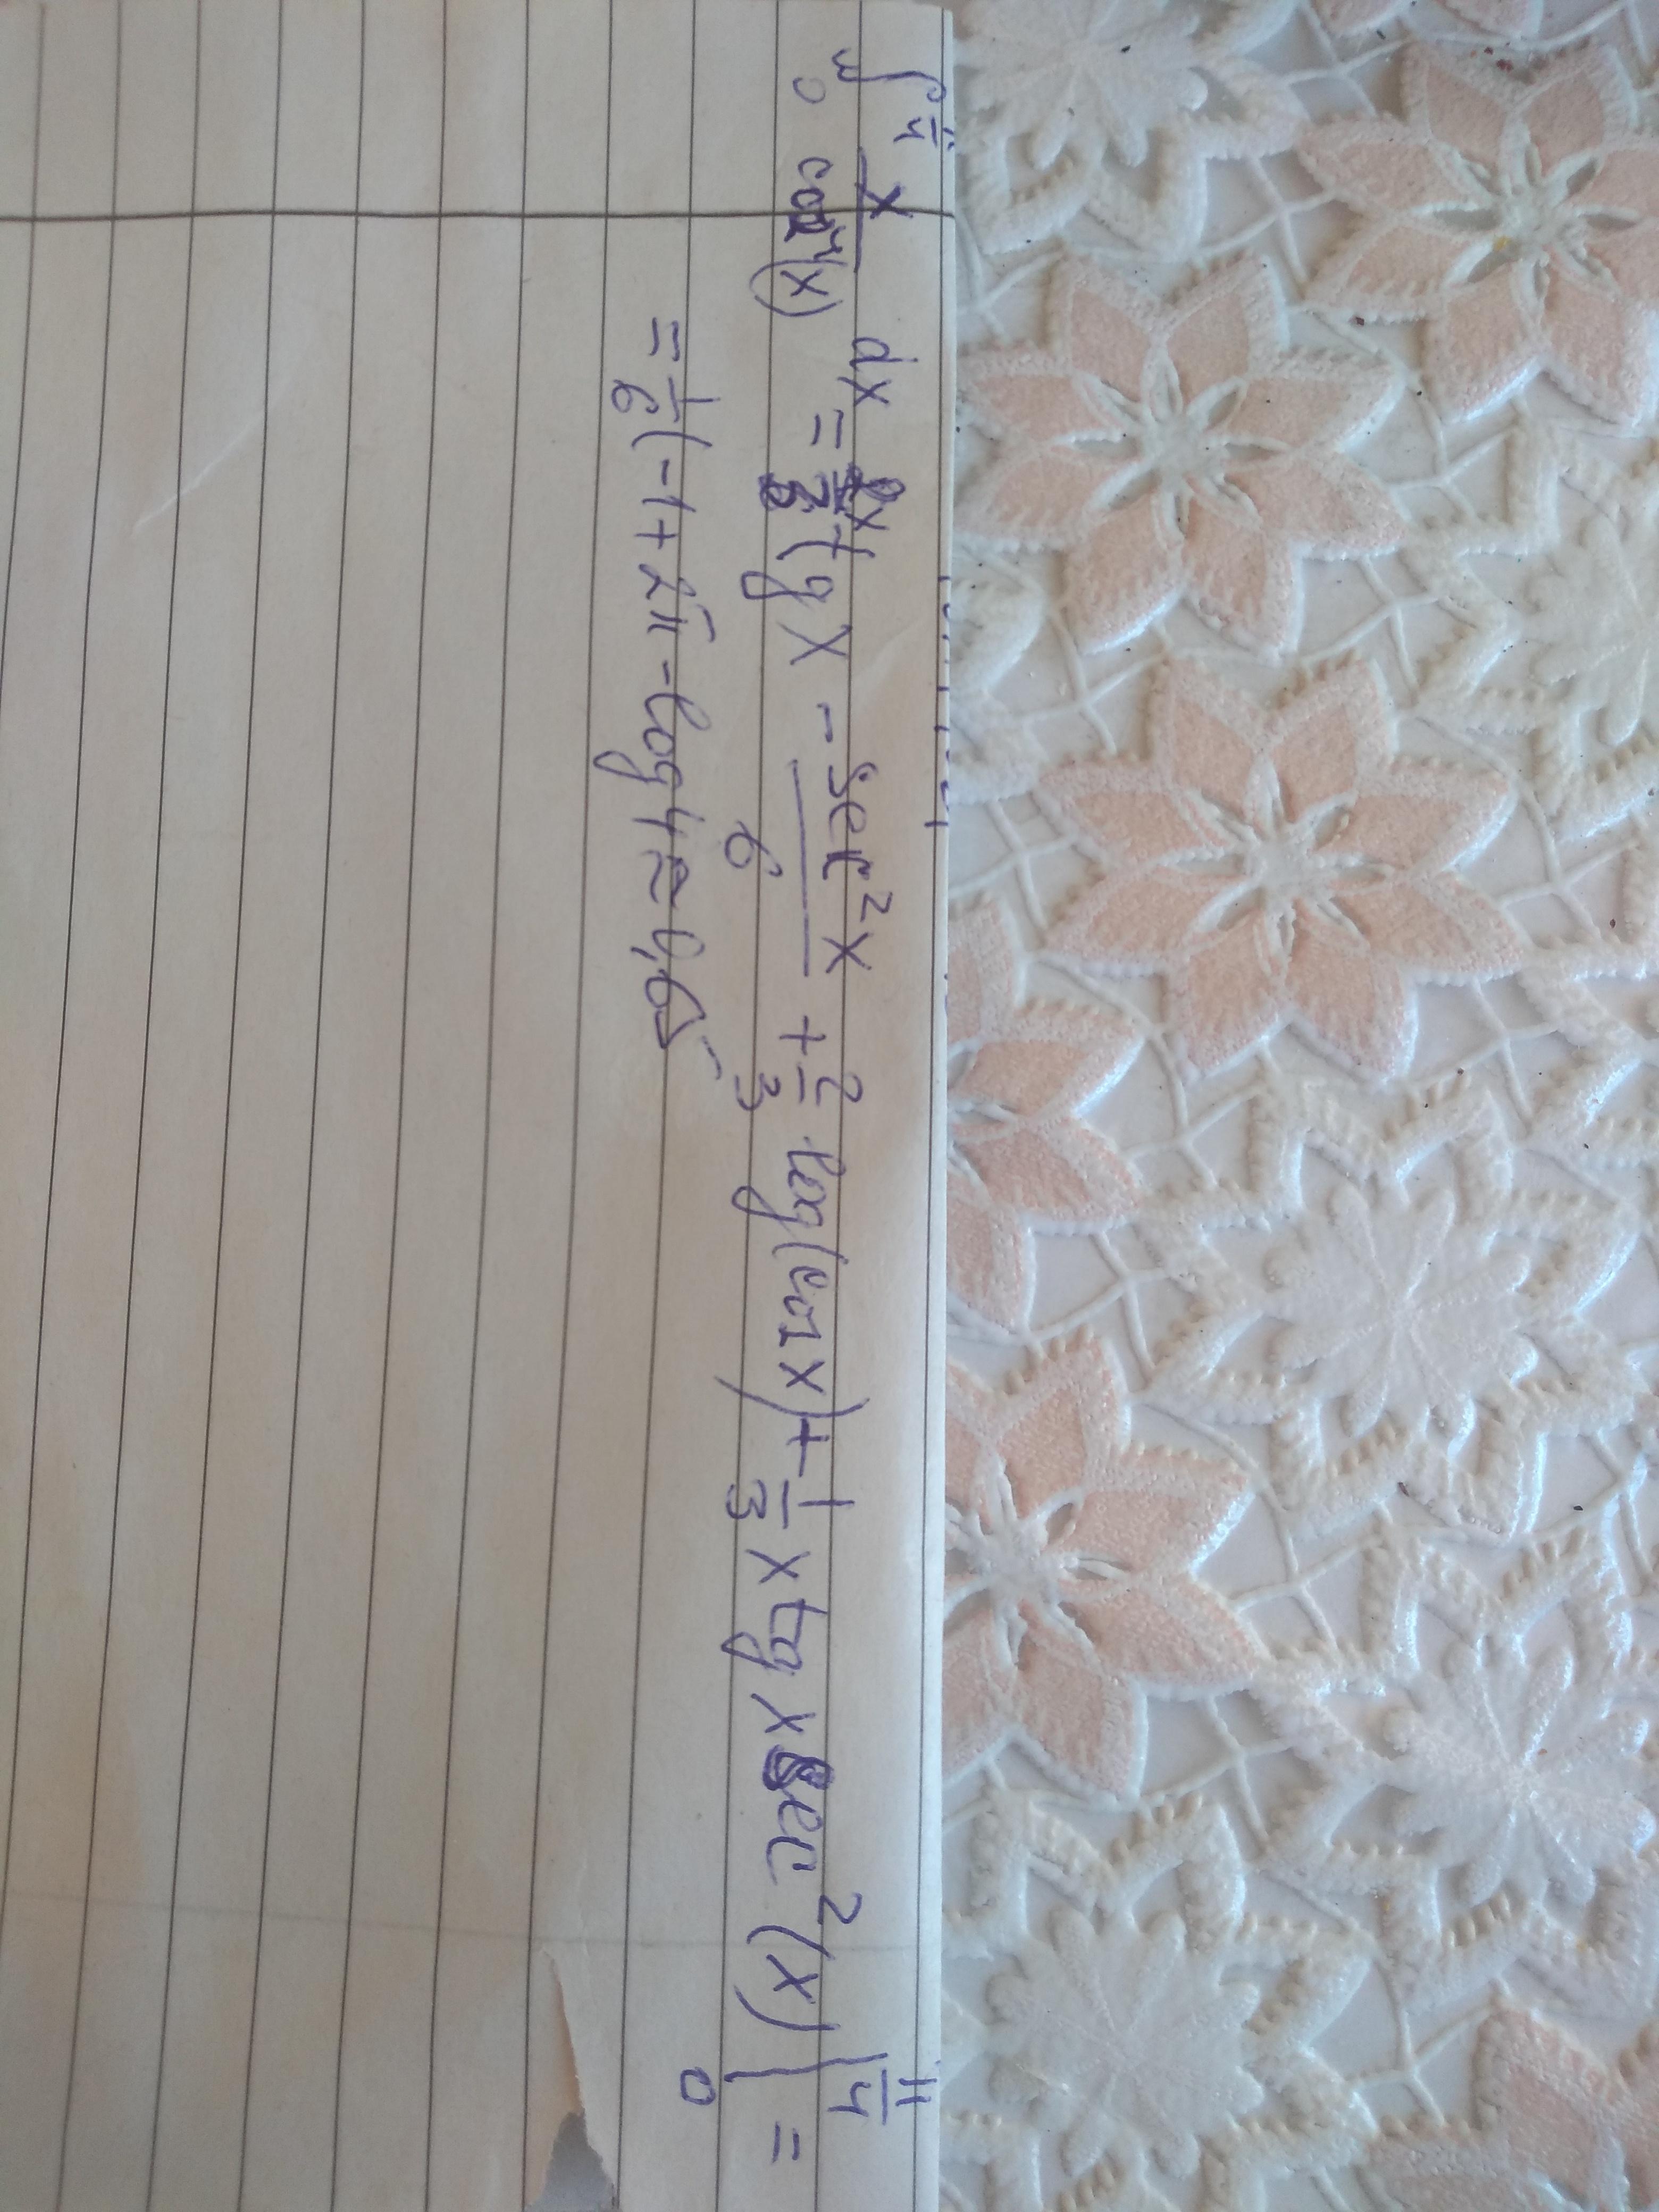 ∫₀^(π/4) x/cos⁴(x) dx = 2x/3 tg x - sec²x/6 + 2/3 log(cos x) + 1/3 x tg x sec²(x) |₀^(π/4) =
= 1/6 (-1 + 2π - log 4 ≈ 0,65